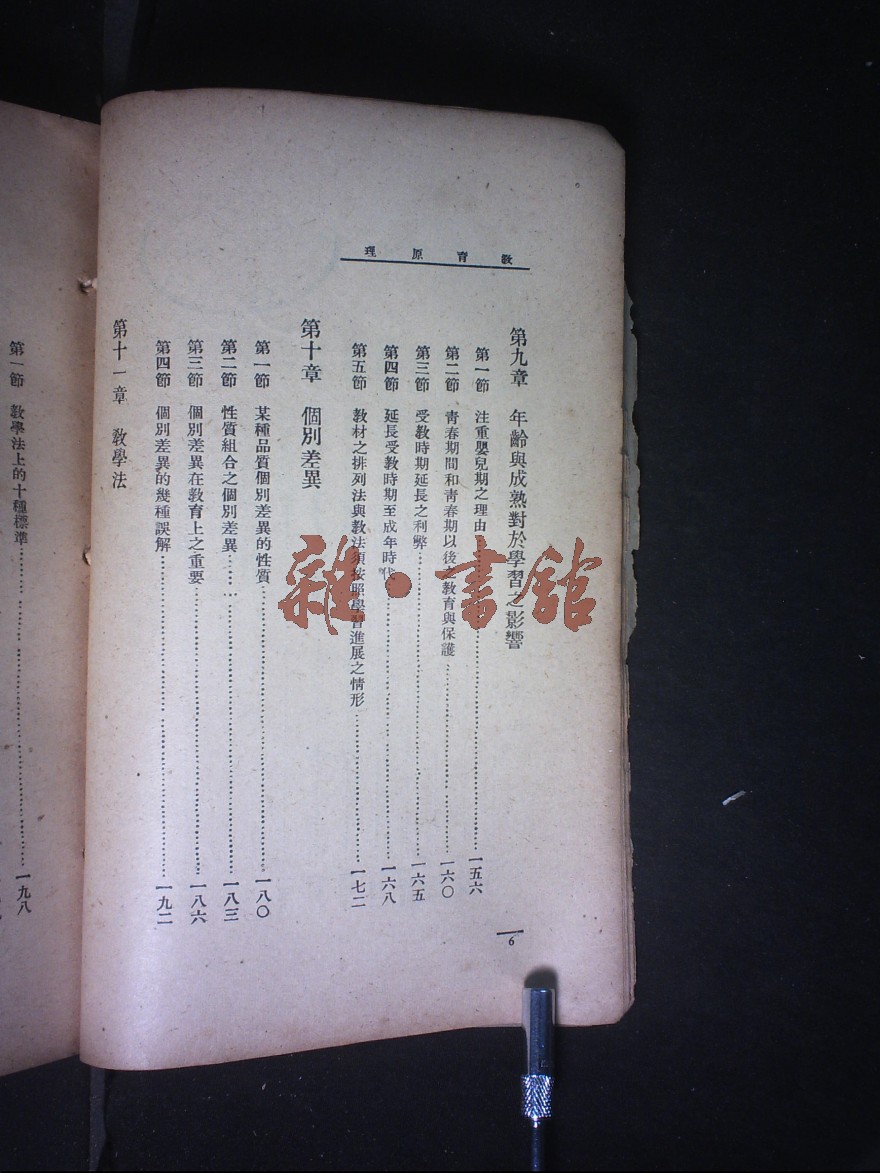 教育原理
第九章 年齡與成熟對於學習之影響
第一節 注重嬰兒期之理由……一五六
第二節 青春期間和青春期以後之教育與保護……一六〇
第三節 受教時期延長之利弊……一六五
第四節 延長受教時期至成年時代……一六八
第五節 教材之排列法與教法須按照學習進展之情形……一七二
第十章 個別差異
第一節 某種品質個別差異的性質……一八〇
第二節 性質組合之個別差異……一八三
第三節 個別差異在教育上之重要……一八六
第四節 個別差異的幾種誤解……一九二
第十一章 教學法
6
第一節 教學法上的十種標準……一九八
雜·書館